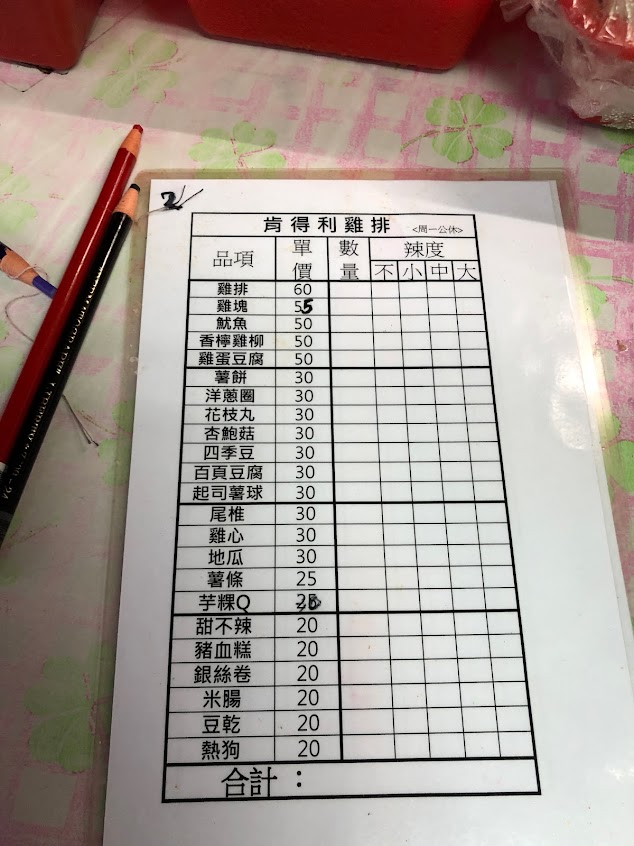 2
肯得利雞排 <周一公休>
品項 單價 數量 辣度
不 小 中 大
雞排 60
雞塊 55
魷魚 50
香檸雞柳 50
雞蛋豆腐 50
薯餅 30
洋蔥圈 30
花枝丸 30
杏鮑菇 30
四季豆 30
百頁豆腐 30
起司薯球 30
尾椎 30
雞心 30
地瓜 30
薯條 25
芋粿Q
甜不辣 20
豬血糕 20
銀絲卷 20
米腸 20
豆乾 20
熱狗 20
合計：